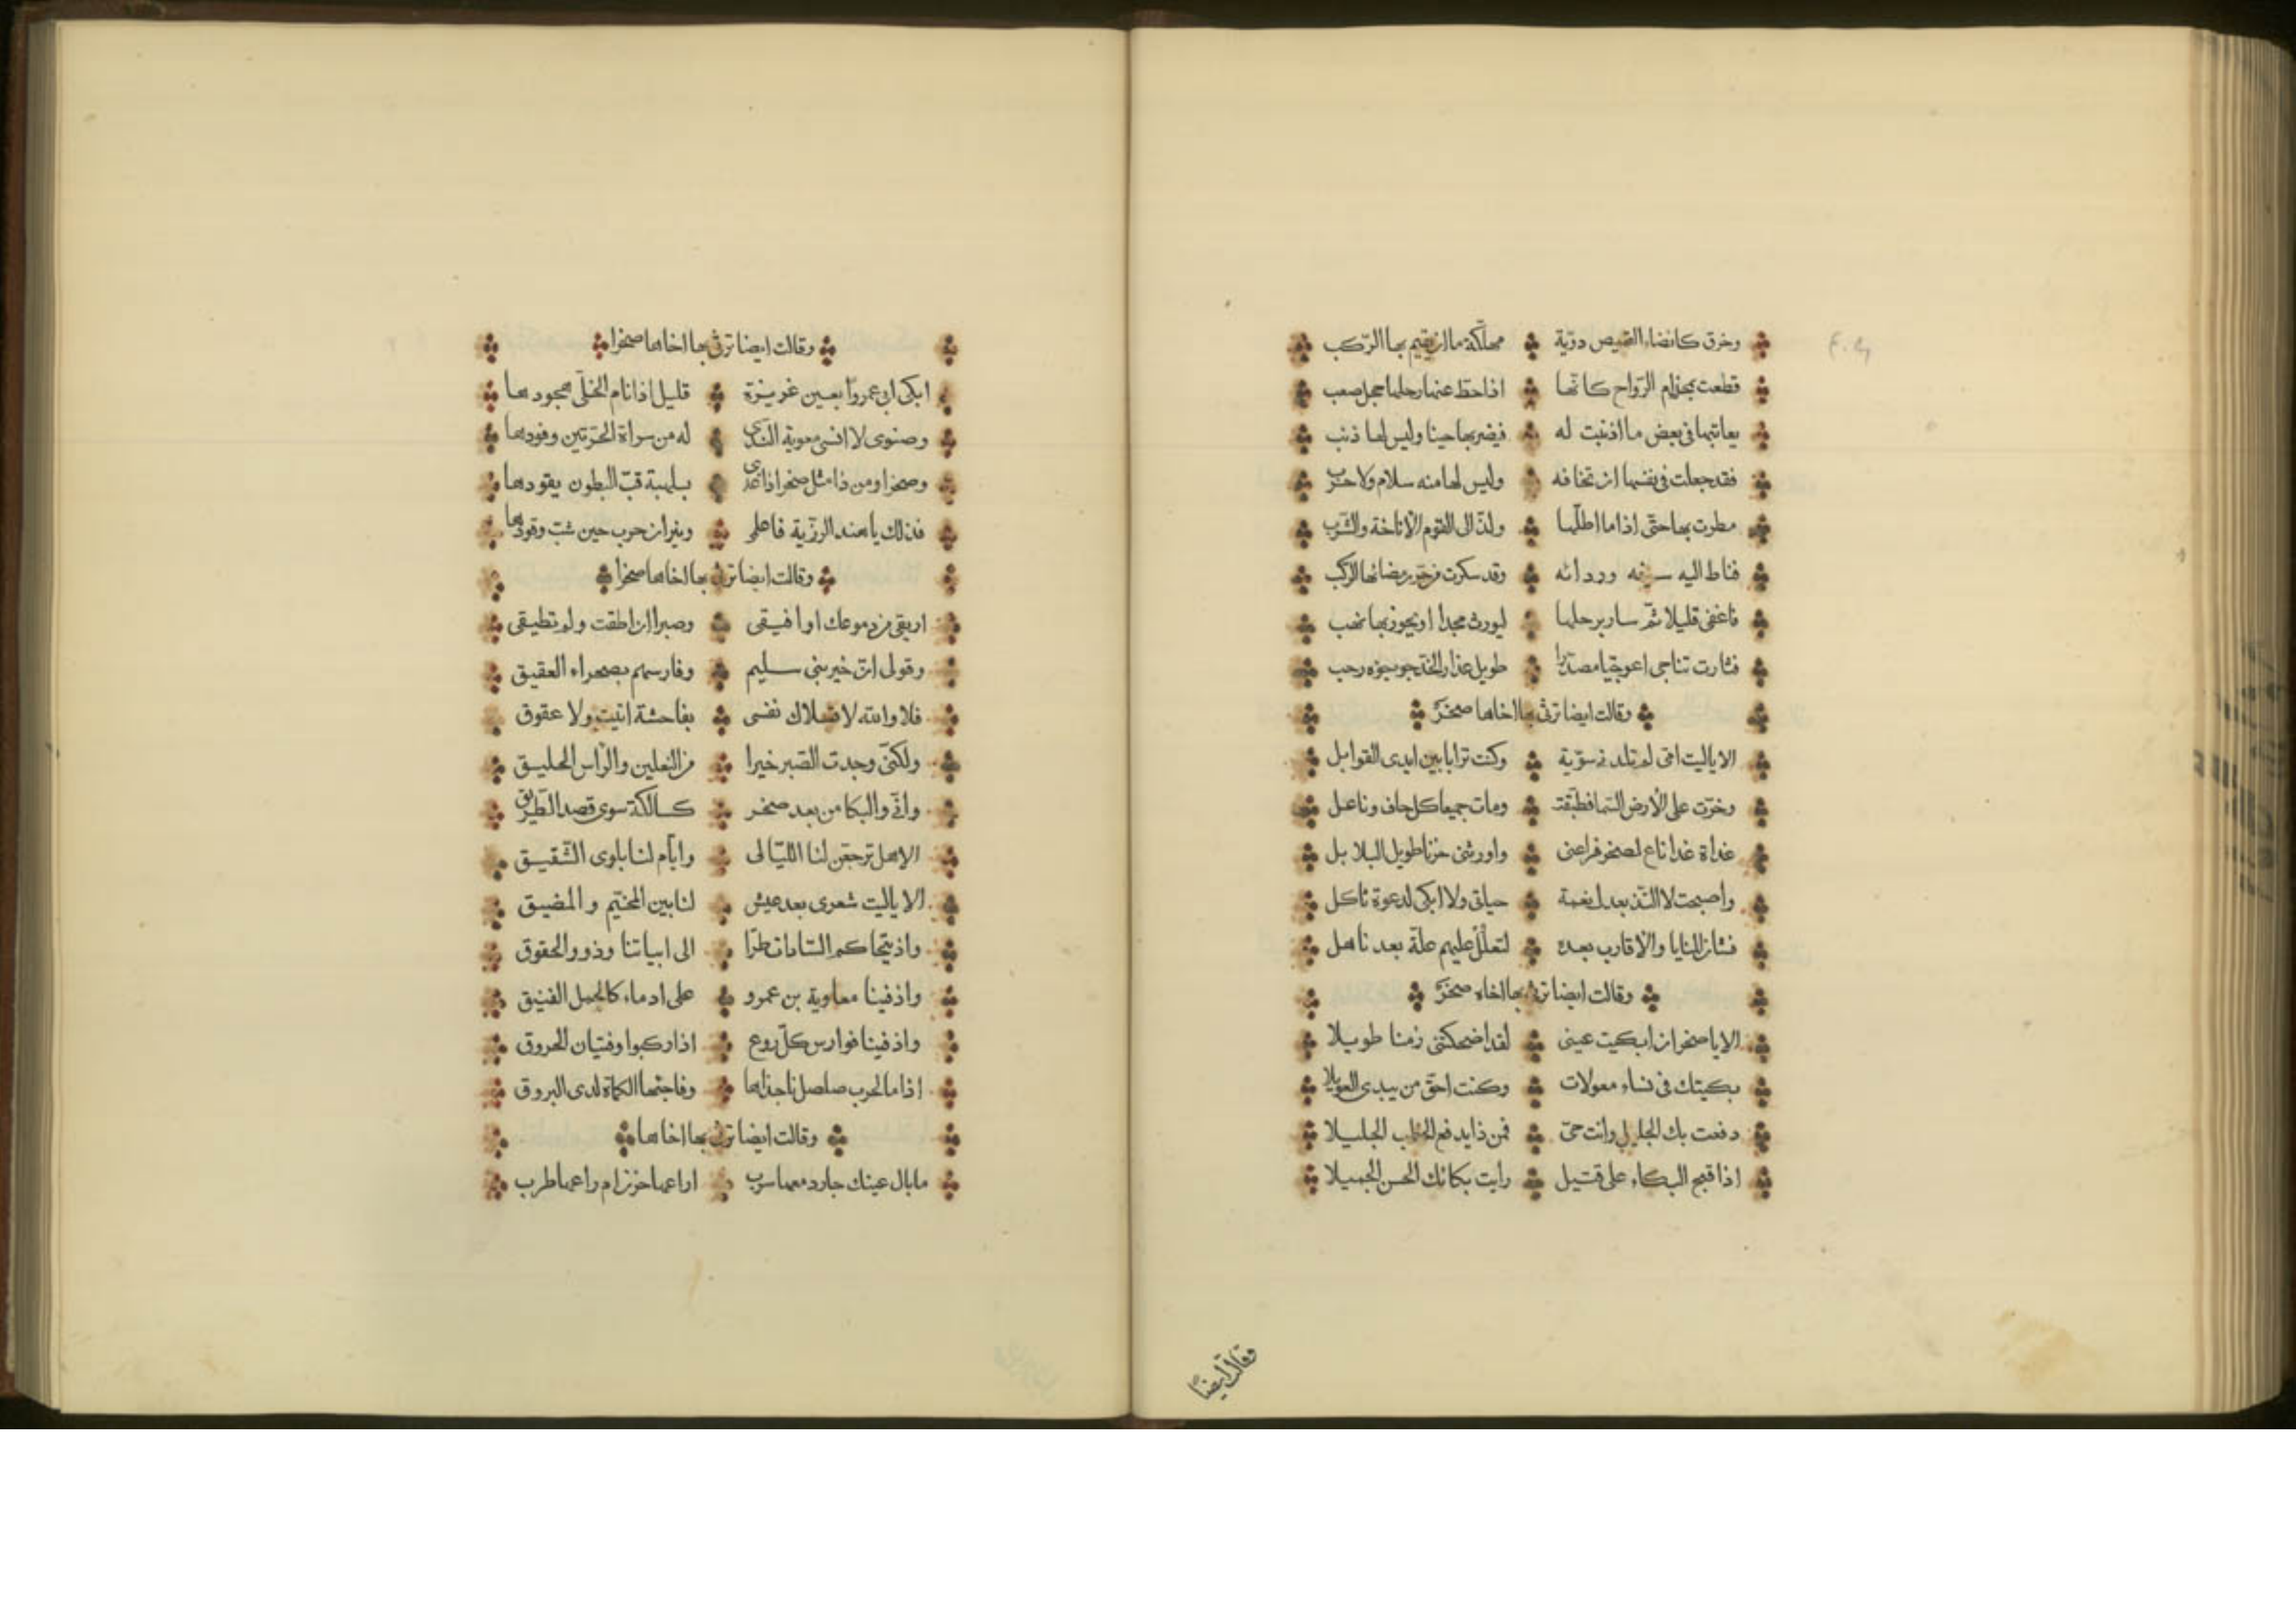 وخرق كانضاء القميص دوّية مهلّكة ما ان يقيم بها الرّكب
قطعت بمجذام الرّواح كانّها اذا حطّ عنها رحلها جمل صعب
يعاتبها فى بعض ما اذنبت له فيضربها حينا وليس لها ذنب
فقد جعلت فى نفسها ان تخافه وليس لها منه سلام ولا حرب
مطرت بها حتّى اذا ما اظلّها ولذّ الى القوم الاناخة والشّرب
فناط اليه سيفه ورداءه وقد سكرت من حرّ رمضائها الركب
فاغفى قليلا ثمّ سار برحلها ليورث مجدا او يحوز بها نهب
فثارت تناجى اعوجيّا مصدّرا طويل عذار الخدّ جوجوه رحب
وقالت ايضا ترثى بها اخاها صخرً
الا ياليت امّى لم تلدنى سوّية وكنت ترابا بين ايدى القوابل
وخرّت على الأرض السّما فطبّقت ومات جميعا كل حاف وناعل
غداة غدا ناع لصخر فراعنى واورثنى حزنا طويل البلابل
واصبحت لا التذ بعدك نعمة حياتى ولا ابكى لدعوة ثاكل
فشان المنايا والأقارب بعده لتعلل عليهم علّة بعد ناهل
وقالت ايضا ترثى بها اخاه صخرً
الا ياصخر ان ابكيت عينى لقد اضحكتنى زمنا طويلا
بكيتك فى نساء معولات وكنت احقّ من يبدى العويلا
دفعت بك الجليل وانت حىّ فمن ذا يدفع الخطب الجليلا
اذا قبح البكاء على قتيل رايت بكائك الحسن الجميلا
وقالت ايضاً
وقالت ايضا ترثى بها اخاها صخرا
ابكى ابى عمروا بعين غزيرة قليل اذا نام الخلّى هجودها
وصنوى لا انسى معوية الّذى له من سراة الحرّتين وفودها
وصخرا ومن ذا مثل صخر اذا غدى بسلهبة قبّ البطون يقودها
فذلك يا هند الرزّية فاعلمى ونيران حرب حين شبّ وقودها
وقالت ايضا ترثى بها اخاها صخرا
اريقى من دموعك او افيقى وصبرا ان اطقت ولم تطيقى
وقولى انّ خير بنى سليم وفارسهم بصحراء العقيق
فلا والله لا تسلاك نفسى بفاحشة اتيت ولا عقوق
ولكنّى وجدت الصّبر خيرا من النعلين والرأس الحليق
وانّى والبكا من بعد صخر كسالكة سوى قصد الطّريق
الا هل ترجعّن لنا اللّيالى وايّام لنا بلوى الشّقيق
الا ياليت شعرى بعد عيش لنا بين المختّم والمضيق
واذ يتحاكم السّادات طرّا الى ابياتنا وذوو الحقوق
واذ فينا معاوية بن عمرو على ادماء كالجمل الفنيق
واذ فينا فوارس كلّ روع اذا ركبوا وفتيان الحروق
اذا ما الحرب صلصل ناجذاها وفاجئها الكماة لدى البروق
وقالت ايضا ترثى بها اخاها
ما بال عينك جارد معها سرب اراعها حزن ام راعها طرب